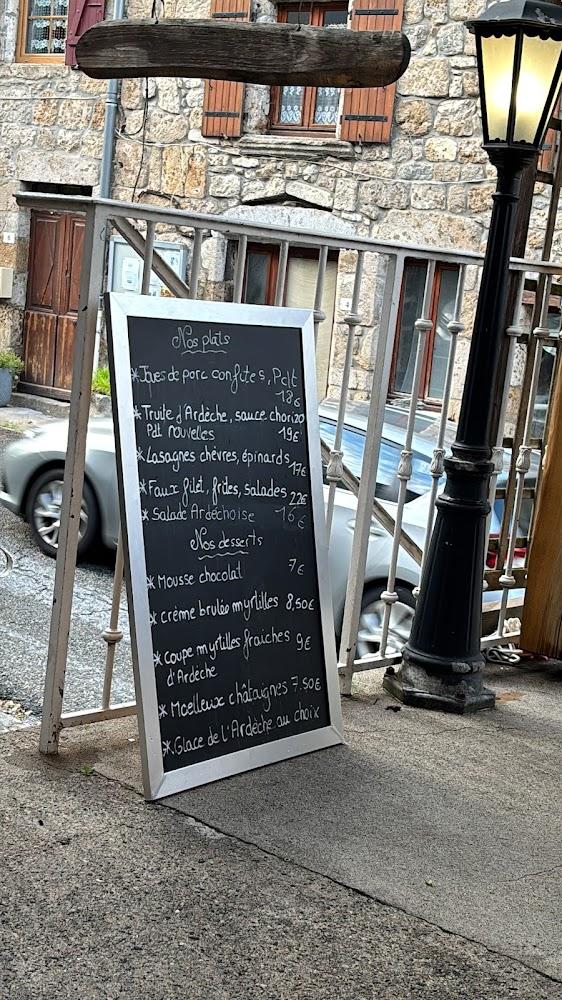 Nos plats
*Joues de porc confites, Pdt
18€
*Truite d'Ardèche, sauce chorizo
Pdt nouvelles 19€
*Lasagnes chèvres, épinards 17€
*Faux filet, frites, salades 22€
*Salade Ardéchoise 16€
Nos desserts
*Mousse chocolat 7€
*crème brulée myrtilles 8,50€
*coupe myrtilles fraiches 9€
d'Ardèche
*Moelleux châtaignes 7.50€
*Glace de L'Ardèche au choix